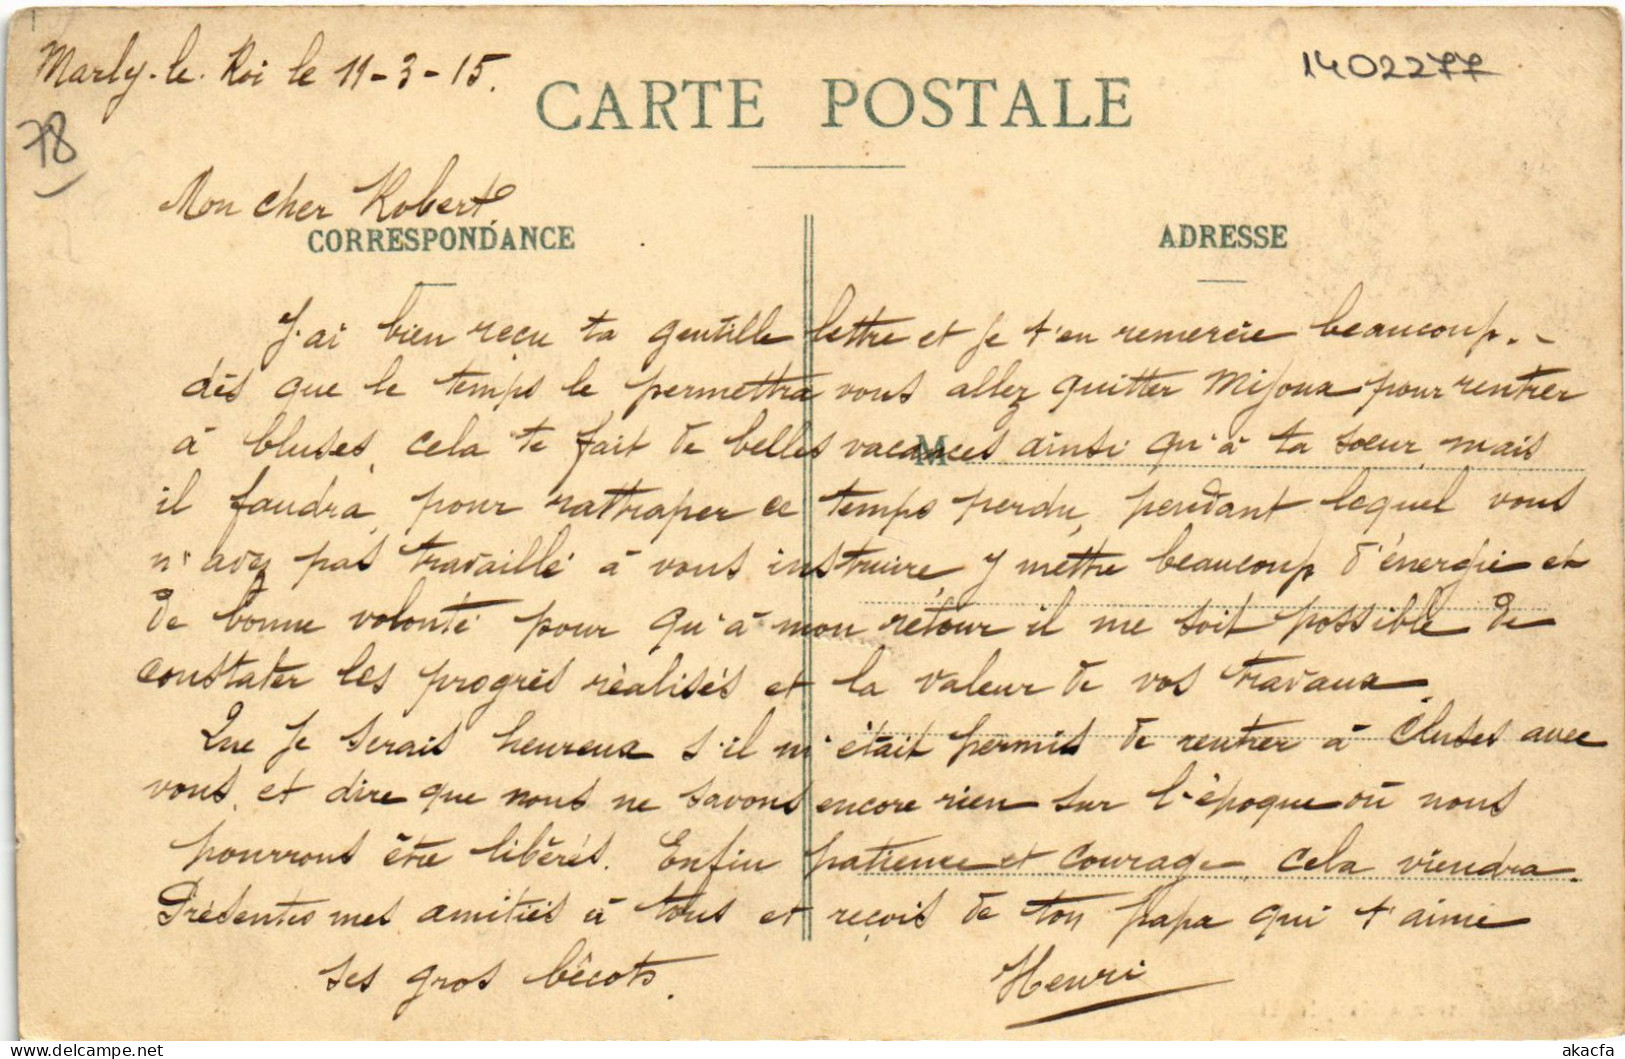 Marly-le-Roi le 11-3-15.
1402277
CARTE POSTALE
78
Mon cher Robert.
CORRESPONDANCE
ADRESSE
J'ai bien reçu ta gentille lettre et je t'en remercie beaucoup. -
dès que le temps le permettra vous allez quitter Mijoux pour rentrer
M
à Cluses, cela te fait de belles vacances ainsi qu'à ta soeur, mais
il faudra, pour rattraper ce temps perdu, pendant lequel vous
n'avez pas travaillé à vous instruire, y mettre beaucoup d'énergie et
de bonne volonté pour qu'à mon retour il me soit possible de
constater les progrès réalisés et la valeur de vos travaux.
Que je serais heureux s'il m'était permis de rentrer à Cluses avec
vous, et dire que nous ne savons encore rien sur l'époque où nous
pourrons être libérés. Enfin patience et courage, cela viendra.
Présentes mes amitiés à tous et reçois de ton papa qui t'aime
ses gros bécots.
Henri
akacfa